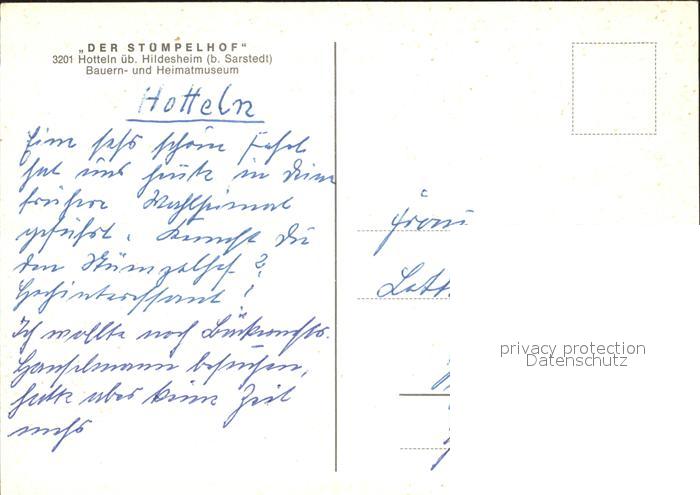 „DER STÜMPELHOF“
3201 Hotteln üb. Hildesheim (b. Sarstedt)
Bauern- und Heimatmuseum
Hotteln
Eine sehr schöne Fahrt
hat uns heute in Deine
frühere Wahlheimat
geführt. Kennst Du
den Stümpelhof?
Hochinteressant!
Ich wollte noch
Hanselmann besuchen,
hatte aber keine Zeit
mehr
Frau
Lott
privacy protection
Datenschutz